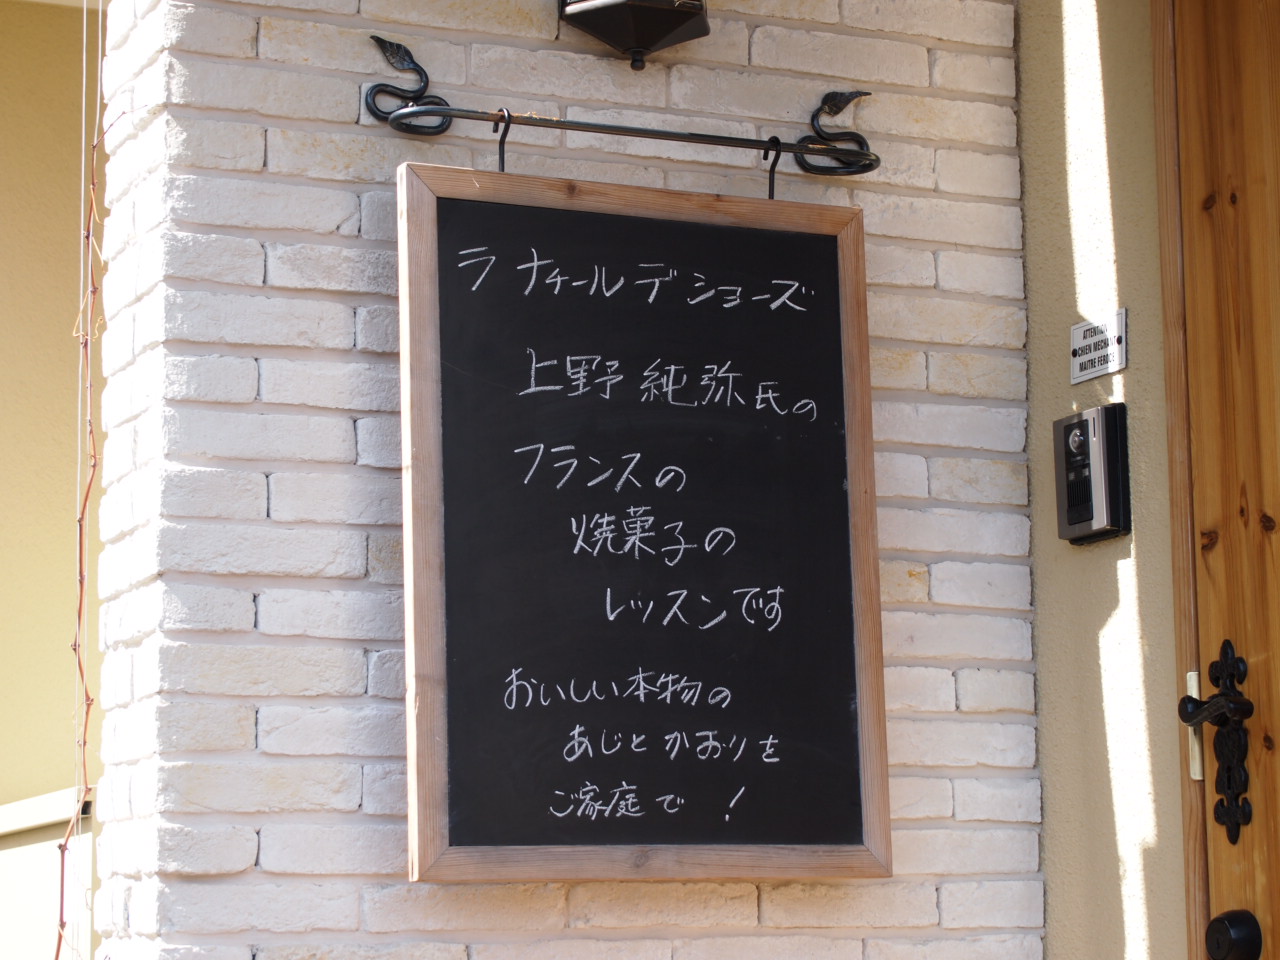 ラ ナチール デ ショーズ
上野 純弥氏の
フランスの
焼菓子の
レッスンです
おいしい本物の
あじとかおりを
ご家庭で !
ATTENTION
CHIEN MECHANT
MAITRE FEROCE